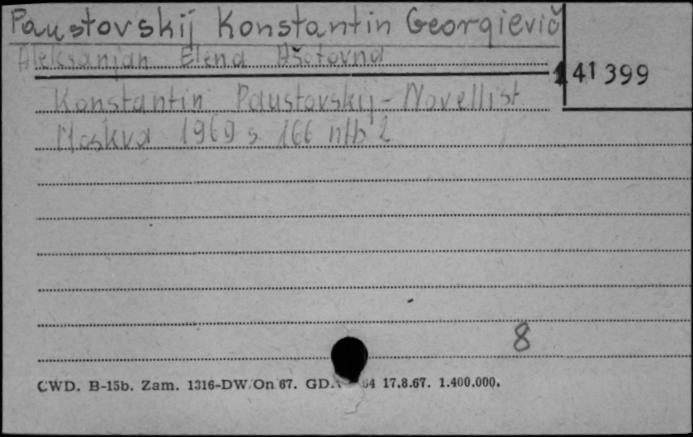 Paustovskij Konstantin Georgievič
Aleksanjan Elena Ašotovna
141 399
Konstantin Paustovskij - Novellist
Moskva 1969 s 166 nlb 2
8
CWD. B-15b. Zam. 1316-DW/On 67. 17.8.67. 1.400.000.